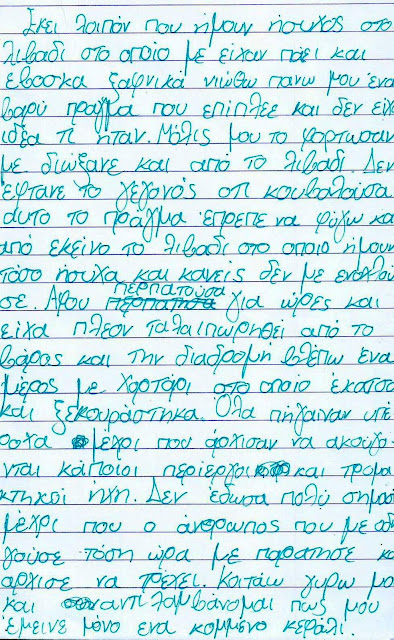 Εκει λοιπόν που ήμουν ήσυχος στο
λιβάδι στο οποίο με είχαν πάει και
έβοσκα ξαφνικά νιώθω πανω μου ένα
βαρύ πράγμα που επιπλεε και δεν είχ
ιδέα τι ήταν. Μόλις μου το φορτωσαν
με διώξανε και από το λιβάδι. Δεν
έφτανε το γεγονός οτι κουβαλούσα
αυτο το πράγμα έπρεπε να φύγω κα
από εκείνο το λιβάδι στο οποιο ήμουν
τόσο ήσυχα και κανείς δεν με ενοχλού
σε. Αφου περπατούσα για ώρες και
είχα πλέον ταλαιπωρηθεί από το
βάρος και την διαδρομή βλέπω ένα
μέρος με χορτάρι στο οποίο έκατσα
και ξεκουράστηκα. Όλα πήγαιναν υπέ
ροχα μέχρι που άρχισαν να ακούγο
νται κάποιοι περίεργοι και τρομα
κτικοί ήχοι. Δεν έδωσα πολύ σημασ
μέχρι που ο άνθρωπος που με οδη
γούσε τόση ώρα με παράτησε κα
αρχισε να τρέχει. Κοιτάω γυρω μο
και αντιλαμβάνομαι πως μου
έμεινε μόνο ενα κομμένο κεφάλι.